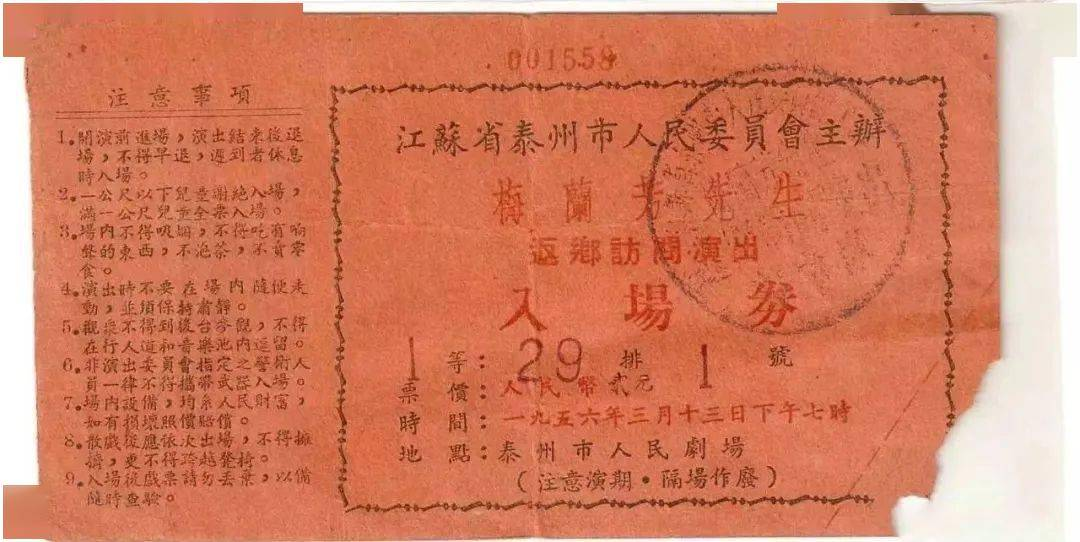 001558
注意事項
1.開演前進場，演出結束後退
場，不得早退，遲到者休息
時入場。
2.一公尺以下兒童謝絕入場，
滿一公尺兒童全票入場。
3.場內不得吸烟，不得吃有响
聲的東西，不泡茶，不賣零
食。
4.演出時不要在場內隨便走
動，並須保持肅靜。
5.觀衆不得到後台参觀，不得
在行人道和音樂池內逗留。
6.非演出委員會指定之警衛人
員一律不得攜帶武器入場。
7.場内設備，均系人民財富，
如有損壞照價賠償。
8.散戲後應依次出場，不得擁
擠，更不得跨越凳椅。
9.入場後戲票請勿丢棄，以備
隨時查驗。
江蘇省泰州市人民委員會主辦
梅蘭芳先生
返鄉訪問演出
入場券
1等：29排1號
票價：人民幣貳元
時間：一九五六年三月十三日下午七時
地點：泰州市人民劇場
（注意演期·隔場作廢）